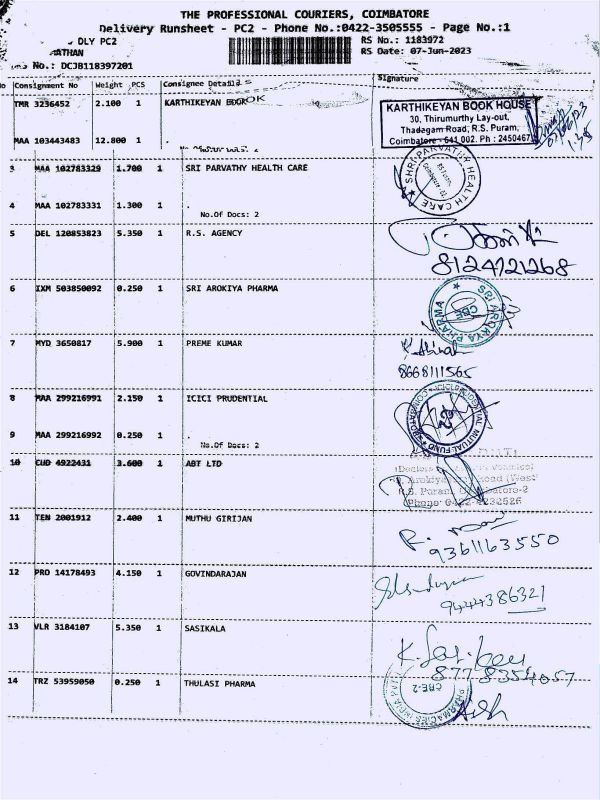 THE PROFESSIONAL COURIERS, COIMBATORE
Delivery Runsheet - PC2 - Phone No.:0422-3505555 - Page No.:1
DLY PC2 RS No.: 1183972
RATHAN RS Date: 07-Jun-2023
No.: DCJB118397201
No Consignment No Weight PCS Consignee Details Signature
TMR 3236452 2.100 1 KARTHIKEYAN BOOK
KARTHIKEYAN BOOK HOUSE
30, Thirumurthy Lay-out,
Thadagam Road, R.S. Puram,
Coimbatore - 641 002. Ph : 2450467
MAA 103443483 12.800 1 .
3 MAA 102783329 1.700 1 SRI PARVATHY HEALTH CARE
SHRI PARVATHY HEALTH CARE
4 MAA 102783331 1.300 1 .
No.Of Docs: 2
5 DEL 120853823 5.350 1 R.S. AGENCY
8124721268
6 IXM 503850092 0.250 1 SRI AROKIYA PHARMA
SRI AROKIYA PHARMA
CBE
7 MYD 3650817 5.900 1 PREME KUMAR
8668111565
8 MAA 299216991 2.150 1 ICICI PRUDENTIAL
ICICI PRUDENTIAL MUTUAL FUND
9 MAA 299216992 0.250 1 .
No.Of Docs: 2
10 CUD 4922431 3.600 1 ABT LTD
Arokiya Road (West)
R.S. Puram, Coimbatore-2
11 TEN 2001912 2.400 1 MUTHU GIRIJAN
9361163550
12 PRO 14178493 4.150 1 GOVINDARAJAN
9444386321
13 VLR 3184107 5.350 1 SASIKALA
8778354057
14 TRZ 53959050 0.250 1 THULASI PHARMA
CBE-2